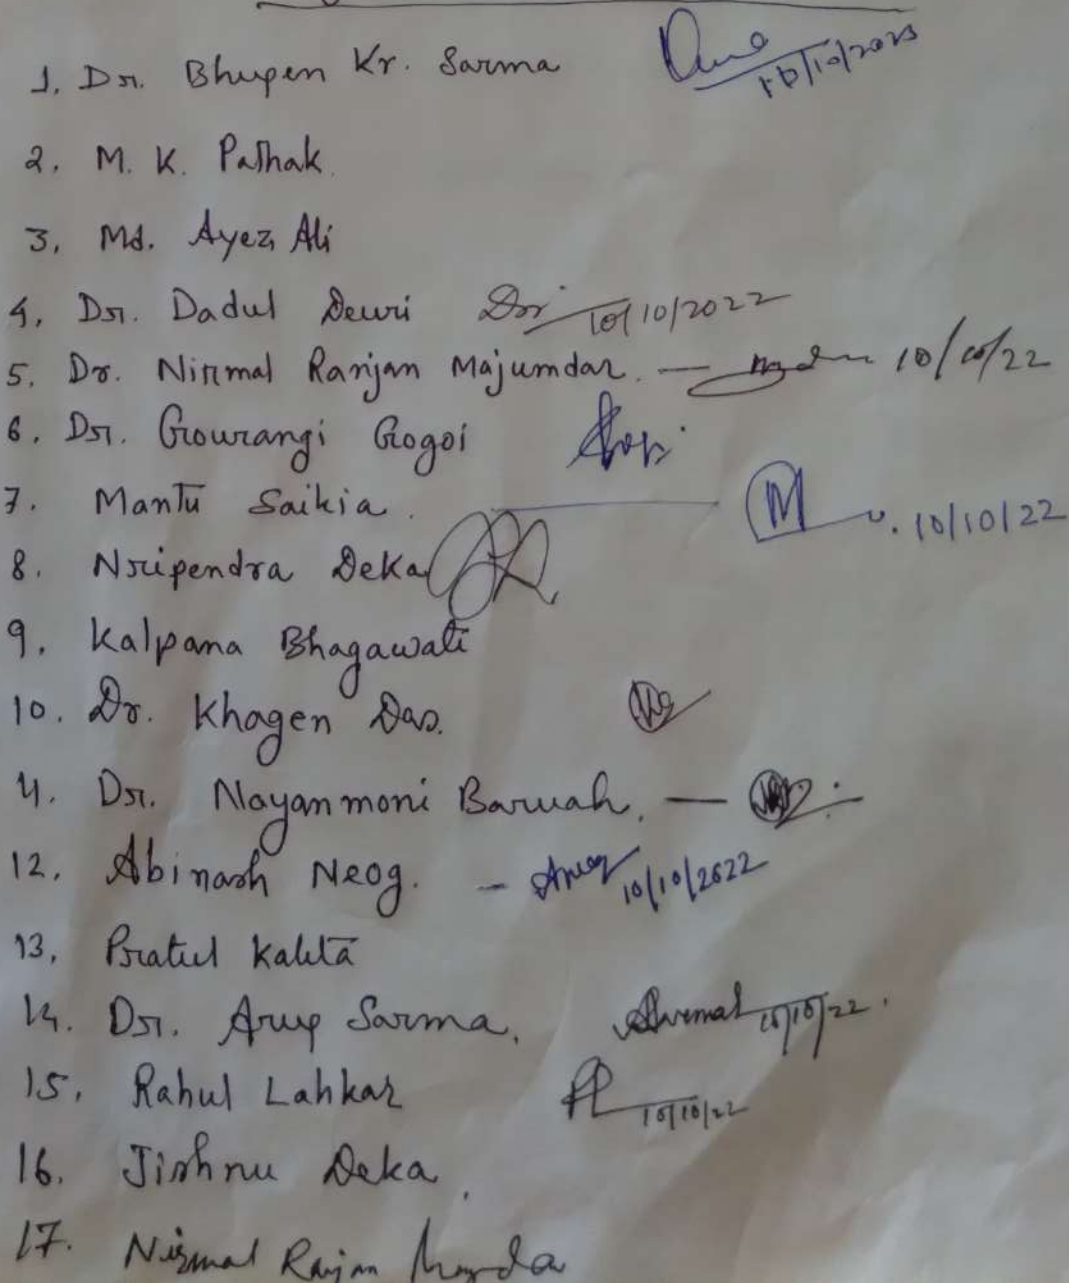 1. Dr. Bhupen Kr. Sarma 10/10/2023
2. M. K. Pathak
3. Md. Ayez Ali
4. Dr. Dadul Dewri 10/10/2022
5. Dr. Nirmal Ranjan Majumdar. — 10/10/22
6. Dr. Gourangi Gogoi
7. Mantu Saikia. M 10/10/22
8. Nripendra Deka
9. Kalpana Bhagawati
10. Dr. Khagen Das.
11. Dr. Nayanmoni Baruah. —
12. Abinash Neog. - 10/10/2022
13. Pratul Kalita
14. Dr. Arup Sarma. 10/10/22.
15. Rahul Lahkar 10/10/22
16. Jishnu Deka.
17. Nirmal Ranjan